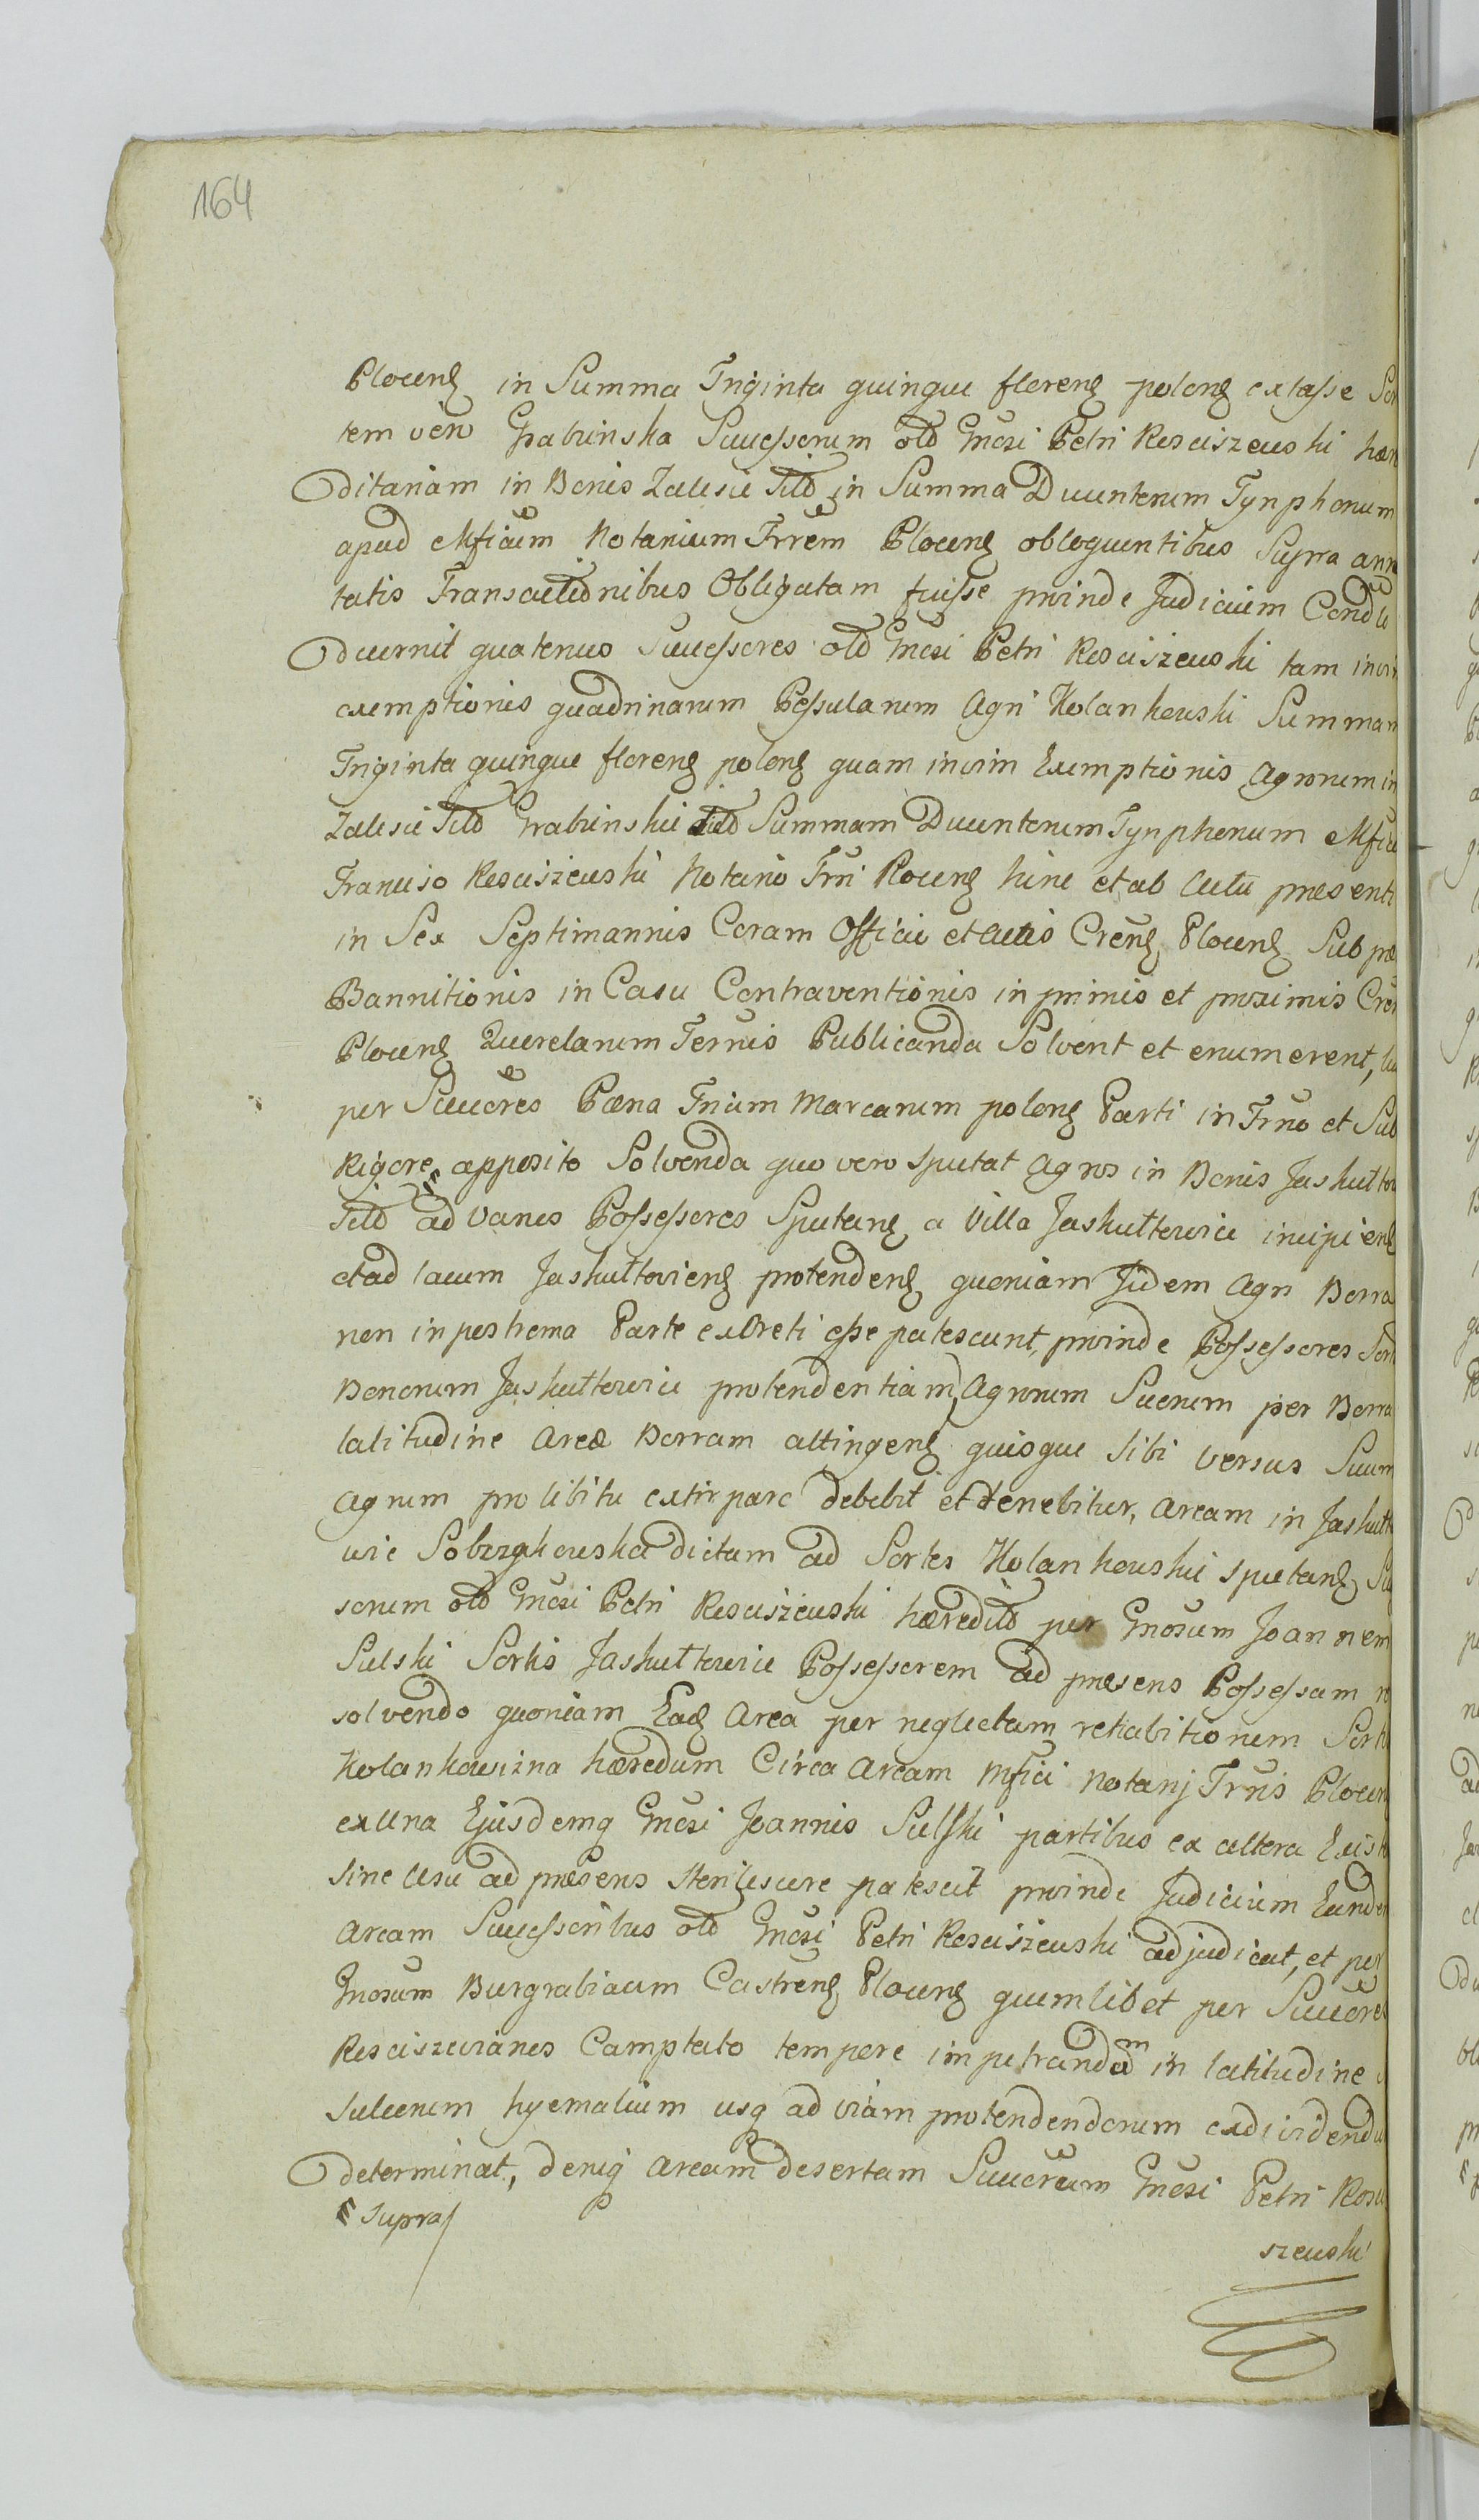 164
Plocen̄ in Summa Triginta quinque floren̄ polon̄ extasse Sor
tem vero Grabinska Successorum olo Gnosi Petri Rosciszewski hære
ditariam in Bonis Zalesie sito in Summa Ducentorum Tynphorum
apud Mficum Notarium Trrem Plocen̄ obloquentibus Supra anno
tatis Transactionibus Obligatam fuisse proinde Judicium Cond̄le
decernit quatenus Successores olo Gnosi Petri Rosciszewski tam in vim
exemptionis quadrinarum Pessularum Agri Kolankowski Summam
Triginta quinque floren̄ polon̄ quam in vim Exemptionis Agrorum in
Zalesie sito Grabinskie sito Summam Ducentorum Tynphorum Mfico
Francisco Rosciszewski Notario Trri Plocen̄ hinc et ab Actu presenti
in Sex Septimannis Coram Officio et Actis Cren̄ Plocen̄ Sub pæ
Bannitionis in Casu Contraventionis in primis et proximis Cren̄
Plocen̄ Querelarum Termis Publicanda Solvent et enumerent, lu
per Succores Pæna Trium Marcarum polon̄ Parti in Trno et Sub
Rigore apposito Solvenda quo vero spectat Agros in Bonis Jaskultow
sito ad varios Possessores Spectan̄ a Villa Jaskultowice incipien̄
et ad lacum Jaskultovien̄ protenden̄ quoniam Jidem Agri Borra
non in postrema Parte exOreti esse patescunt, proinde Possessores Sort
Bonorum Jaskultowice protendentiam Agrorum Suorum per Borra
latitudine Areæ Borram attingen̄ quisque sibi versus Suum
Agrum pro libitu extirpare debebit et tenebitur, Aream in Jaskulto
wie Sobrzykowska dictam ad Sortes Kolankowskie spectan̄ Suc
sorum olo Gnosi Petri Rosciszewski hæredito per Gnosum Joannem
Sulski Sortis Jaskultowice Possessorem ad presens Possessam re
solvendo quoniam Ead̄ Area per neglectam rehabitionem Sortis
Kolankowizna hæredum Circa Aream Mfici Notarij Trris Plocen
ex Una Ejusdemq Gnosi Joannis Sulski partibus ex altera Exist
sine Usu ad præsens sterilescere patescit proinde Judicium Eandem
Aream Successoribus olo Gnosi Petri Rosciszewski adjudicat, et per
Gnosum Burgrabium Castren̄ Plocen̄ quemlibet per Succores
Rosciszewianos Camptato tempore impetrandam in latitudine
sulcorum hyemalium usq ad viam protendendorum exdividendu
determinat, deniq Aream desertam Succorum Gnosi Petri Rosci
supra
szewski